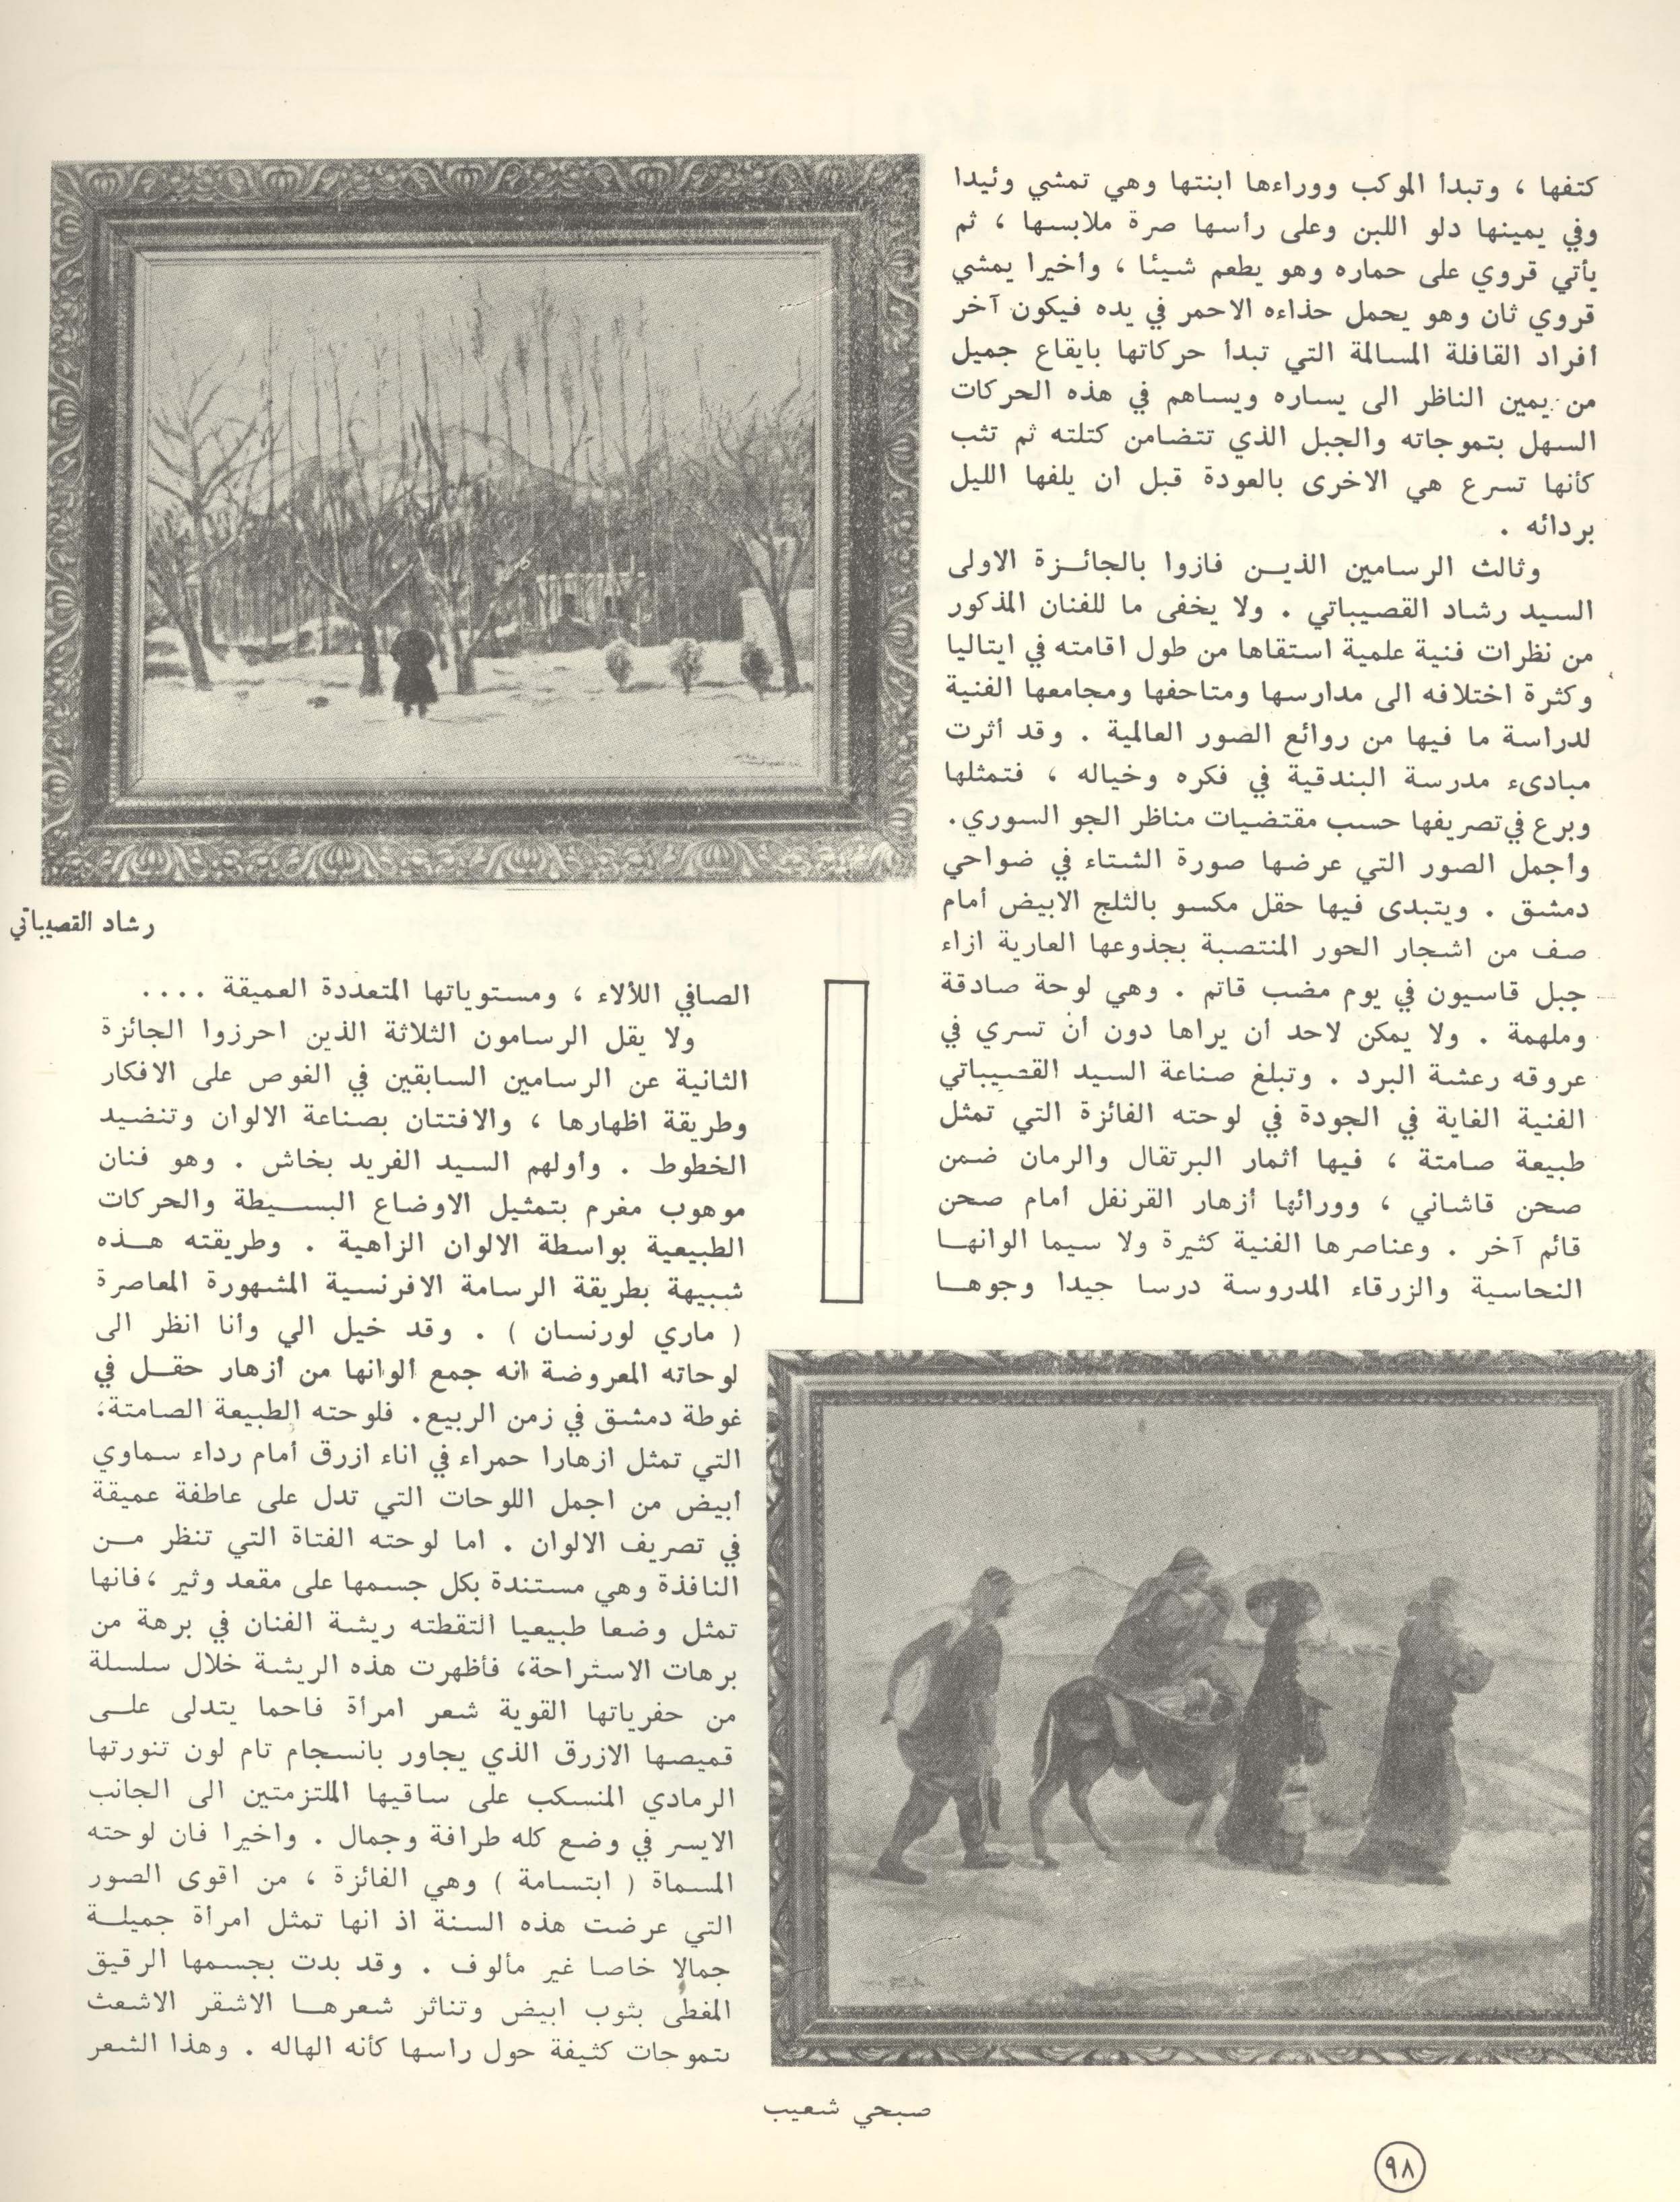 كتفها ، وتبدأ الموكب ووراءها ابنتها وهي تمشي وئيدا
وفي يمينها دلو اللبن وعلى رأسها صرة ملابسها ، ثم
يأتي قروي على حماره وهو يطعم شيئا ، وأخيرا يمشي
قروي ثان وهو يحمل حذاءه الاحمر في يده فيكون آخر
أفراد القافلة المسالمة التي تبدأ حركاتها بايقاع جميل
من يمين الناظر الى يساره ويساهم في هذه الحركات
السهل بتموجاته والجبل الذي تتضامن كتلته ثم تثب
كأنها تسرع هي الاخرى بالعودة قبل ان يلفها الليل
بردائه .
وثالث الرسامين الذيــن فازوا بالجائــزة الاولى
السيد رشاد القصيباتي . ولا يخفى ما للفنان المذكور
من نظرات فنية علمية استقاها من طول اقامته في ايتاليا
وكثرة اختلافه الى مدارسها ومتاحفها ومجامعها الفنية
لدراسة ما فيها من روائع الصور العالمية . وقد أثرت
مبادىء مدرسة البندقية في فكره وخياله ، فتمثلها
وبرع في تصريفها حسب مقتضيات مناظر الجو السوري.
وأجمل الصور التي عرضها صورة الشتاء في ضواحي
دمشق . ويتبدى فيها حقل مكسو بالثلج الابيض أمام
صف من اشجار الحور المنتصبة بجذوعها العارية ازاء
جبل قاسيون في يوم مضب قاتم . وهي لوحة صادقة
وملهمة . ولا يمكن لاحد أن يراها دون أن تسري في
عروقه رعشة البرد . وتبلغ صناعة السيد القصيباتي
الفنية الغاية في الجودة في لوحته الفائزة التي تمثل
طبيعة صامتة ، فيها أثمار البرتقال والرمان ضمن
صحن قاشاني ، وورائها أزهار القرنفل أمام صحن
قائم آخر . وعناصرها الفنية كثيرة ولا سيما الوانهــا
النحاسية والزرقاء المدروسة درسا جيدا وجوهــا
رشاد القصيباتي
الصافي اللألاء ، ومستوياتها المتعددة العميقة ....
ولا يقل الرسامون الثلاثة الذين احرزوا الجائزة
الثانية عن الرسامين السابقين في الغوص على الافكار
وطريقة اظهارها ، والافتتان بصناعة الالوان وتنضيد
الخطوط . وأولهم السيد الفريد بخاش . وهو فنان
موهوب مغرم بتمثيل الاوضاع البســيطة والحركات
الطبيعية بواسطة الالوان الزاهية . وطريقته هــذه
شبيهة بطريقة الرسامة الافرنسية المشهورة المعاصرة
( ماري لورنسان ) . وقد خيل الي وأنا انظر الى
لوحاته المعروضة انه جمع الوانها من أزهار حقــل في
غوطة دمشق في زمن الربيع. فلوحته الطبيعة الصامتة،
التي تمثل ازهارا حمراء في اناء ازرق أمام رداء سماوي
أبيض من اجمل اللوحات التي تدل على عاطفة عميقة
في تصريف الالوان . اما لوحته الفتاة التي تنظر مــن
النافذة وهي مستندة بكل جسمها على مقعد وثير ،فانها
تمثل وضعا طبيعيا التقطته ريشة الفنان في برهة من
برهات الاستراحة، فأظهرت هذه الريشة خلال سلسلة
من حفرياتها القوية شعر امرأة فاحما يتدلى علــى
قميصها الازرق الذي يجاور بانسجام تام لون تنورتها
الرمادي المنسكب على ساقيها الملتزمتين الى الجانب
الايسر في وضع كله طرافة وجمال . واخيرا فان لوحته
المسماة ( ابتسامة ) وهي الفائزة ، من اقوى الصور
التي عرضت هذه السنة اذ انها تمثل امرأة جميلــة
جمالا خاصا غير مألوف . وقد بدت بجسمها الرقيق
المغطى بثوب ابيض وتناثر شعرهــا الاشقر الاشعث
بتموجات كثيفة حول راسها كأنه الهاله . وهذا الشعر
صبحي شعيب
٩٨